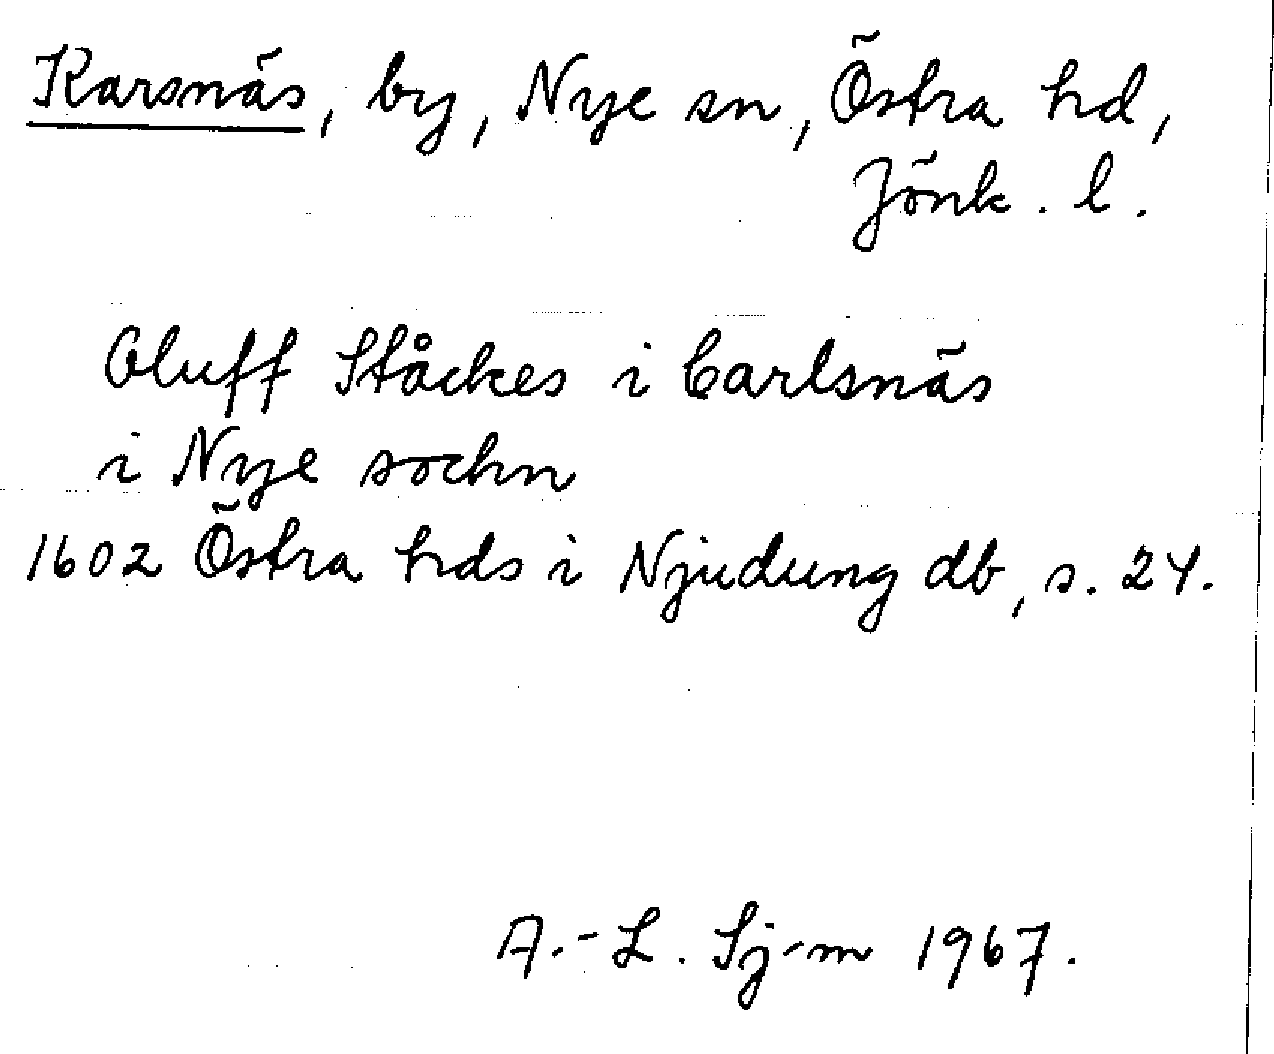 Karsnäs, by, Nye sn, Östra hd,
Jönk. l.
Oluff Ståckes i Carlsnäs
i Nye sochn
1602 Östra hds i Njudung db, s. 24.
A.-L. Sj-m 1967.